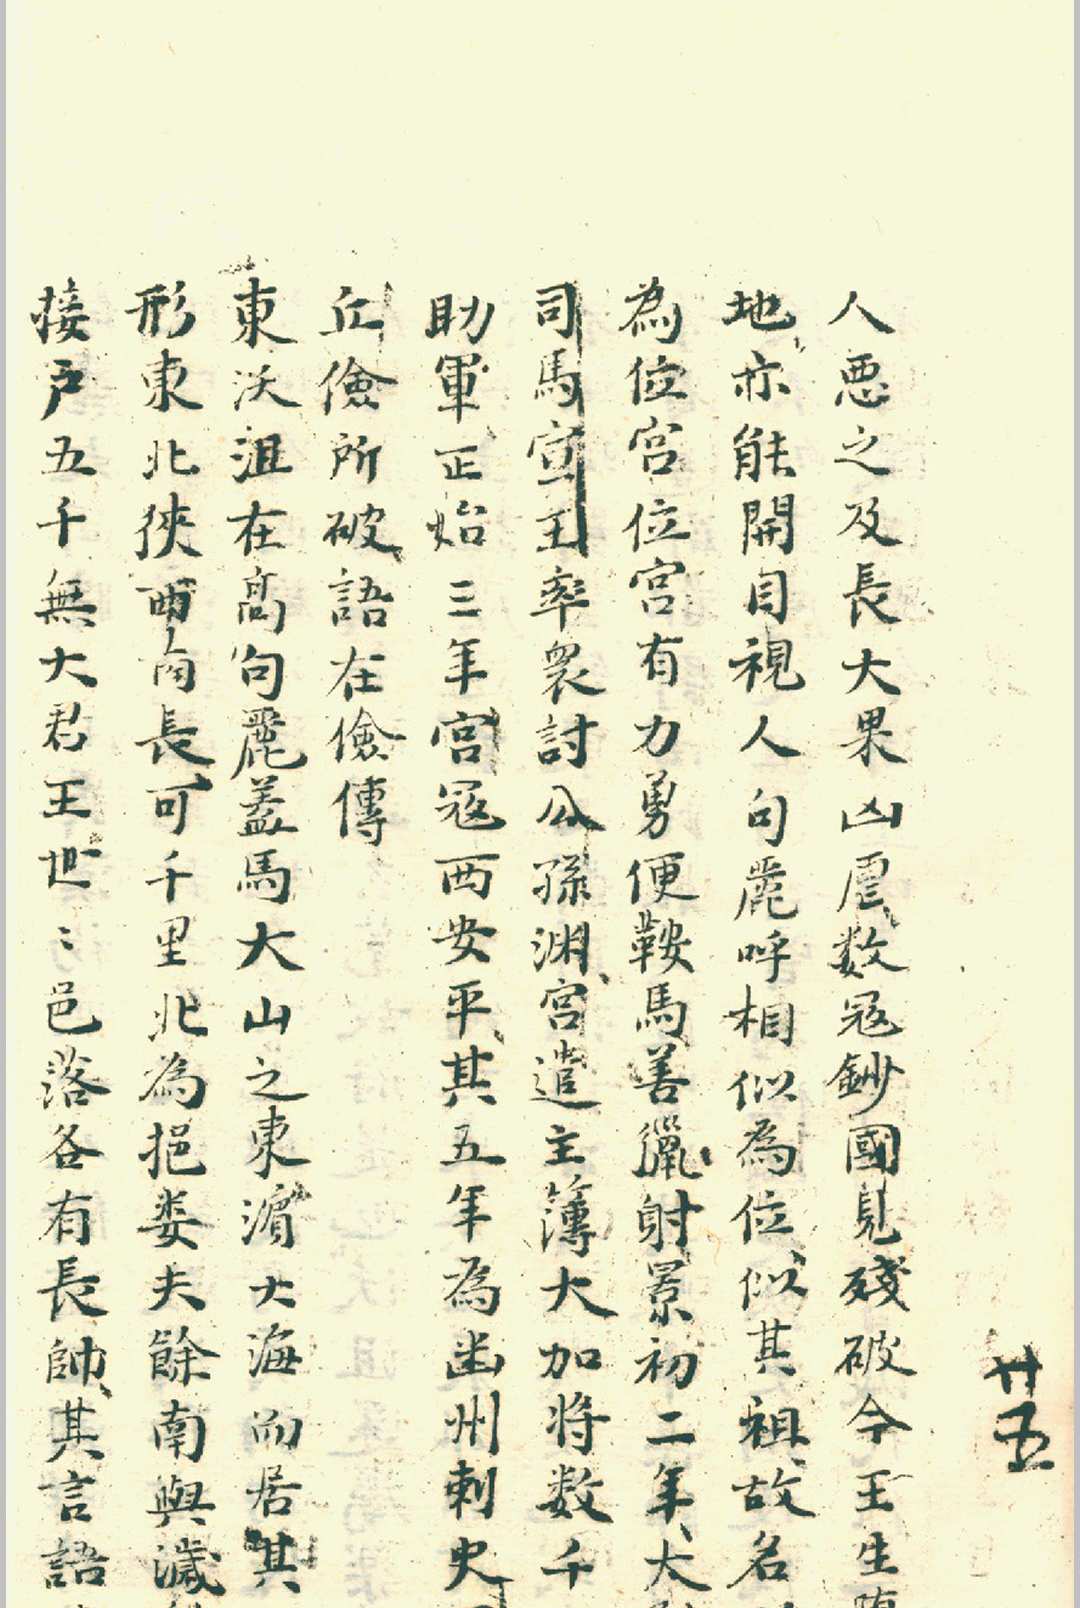 廿五
人悪之及長大果凶虐数冦鈔國見殘破今王生
地亦能開目視人句麗呼相似為位似其祖故名
為位宮位宮有力勇便鞍馬善獵射景初二年大
司馬宣王率衆討公孫淵宮遣主簿大加将数千
助軍正始三年宮冦西安平其五年為幽州刺史
丘儉所破語在儉傳
東沃沮在髙句麗蓋馬大山之東濵大海而居其
形東北狹西南長可千里北為挹娄夫餘南與濊
接戸五千無大君王世〻邑落各有長帥其言語